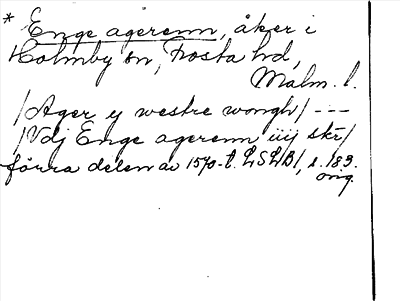 * Enge agerenn, åker i
Holmby sn, Frosta hd,
Malm. l.
/Ager ij westre wongh/ ---
/Vdj Enge agerenn iiij skr/
förra delen av 1570-t. LSLB/, s. 183.
orig.